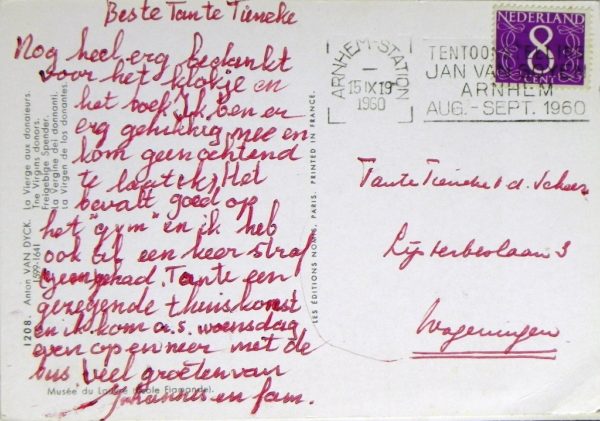 Beste Tante Tieneke
Nog heel erg bedankt
voor het klokje en
het boek. Ik ben er
erg gelukkig mee en
kom geen ochtend
te laat. Het
bevalt goed op
het "gym" en ik heb
ook al een keer straf
gehad. Tante een
gezegende thuiskomst
en ik kom a.s. woensdag
even op en neer met de
bus veel groeten van
Johannis en fam.
1208. Anton VAN DYCK. La Vierge aux donateurs.
1599-1641 The Virgins donors.
Freigebige Spender.
La Vergine dei donnanti.
La Virgen de los donantes.
Musée du Louvre (Ecole Flamande).
LES ÉDITIONS NOMIS, PARIS. PRINTED IN FRANCE.
ARNHEM-STATION
15 IX 19
1960
TENTOON
JAN VA
ARNHEM
AUG.-SEPT. 1960
NEDERLAND
8
CENT
Tante Tieneke v.d.
Lijsterbeslaan 3
Wageningen